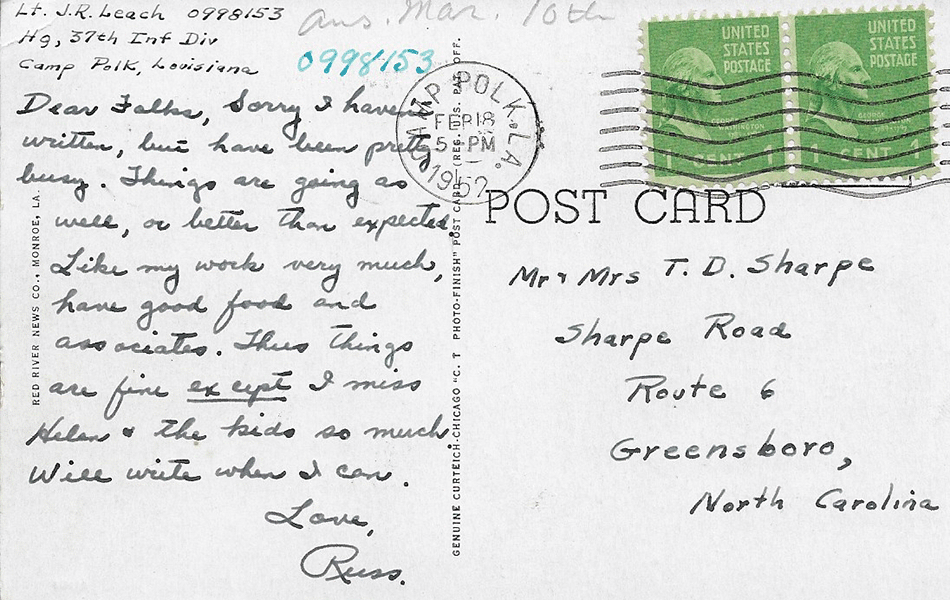 Lt. J.R. Leach 0998153
Hq, 37th Inf Div
Camp Polk, Louisiana
Ans. Mar. 10th
0998153
Dear Folks, Sorry I haven't
written, but have been pretty
busy. Things are going as
well, or better than expected.
Like my work very much,
have good food and
associates. Thus things
are fine except I miss
Helen & the kids so much.
Will write when I can.
Love,
Russ.
RED RIVER NEWS CO., MONROE, LA.
GENUINE CURTEICH-CHICAGO "C. T. PHOTO-FINISH" POST CARD (REG. U.S. PAT. OFF.
CAMP POLK, LA.
FEB 18
5 - PM
1952
UNITED
STATES
POSTAGE
GEORGE
WASHINGTON
1 CENT 1
UNITED
STATES
POSTAGE
GEORGE
WASHINGTON
1 CENT 1
POST CARD
Mr & Mrs T. D. Sharpe
Sharpe Road
Route 6
Greensboro,
North Carolina